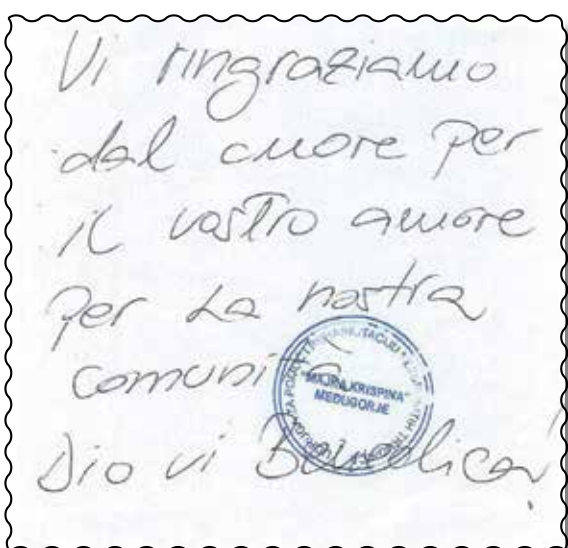 Vi ringraziamo
dal cuore per
il vostro amore
per la nostra
comunità
Dio vi Benedica!
"MAJKA KRISPINA"
MEĐUGORJE